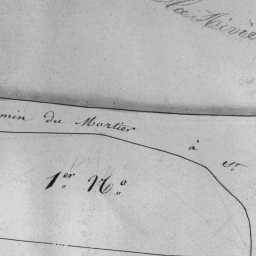 La Riviè
min du Mortier à St
1er No